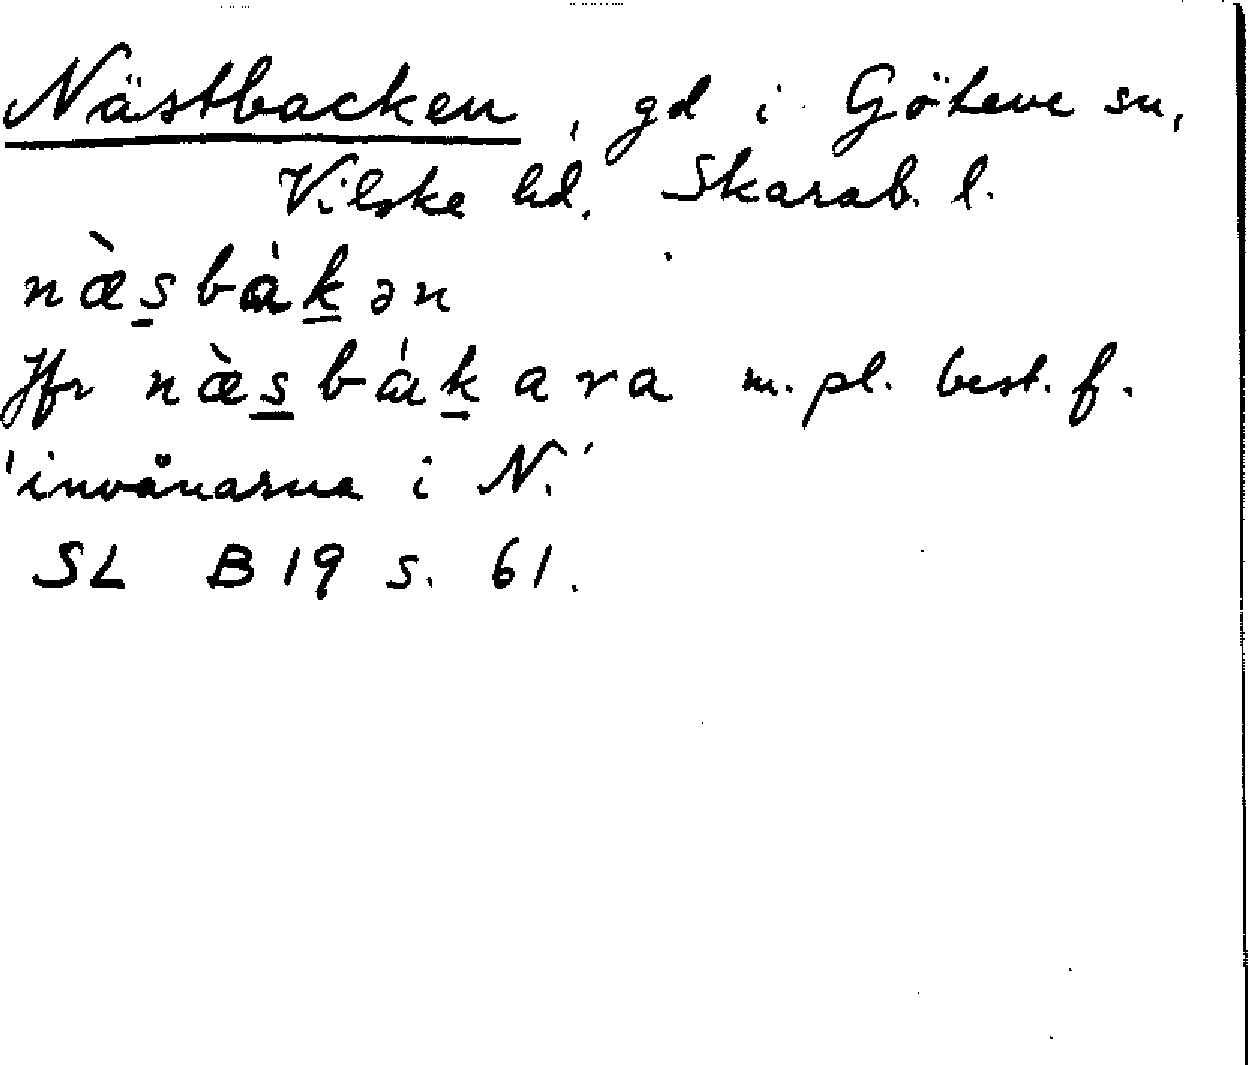 Nästbacken, gd i Göteve sn,
Vilske hd. Skarab. l.
næ̀s̲bák̲ən
Jfr næ̀s̲bák̲ara m. pl. best. f.
'invånarna i N.'
SL B 19 s. 61.